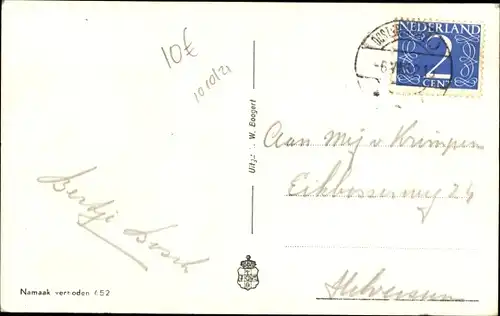 10€
10/10/21
NEDERLAND
2
CENT
Uitg. W. Boogert
Aan Mej v Krimpen
Eikbosserweg 24
Hilversum
Bertje Bosch
Namaak verboden 652